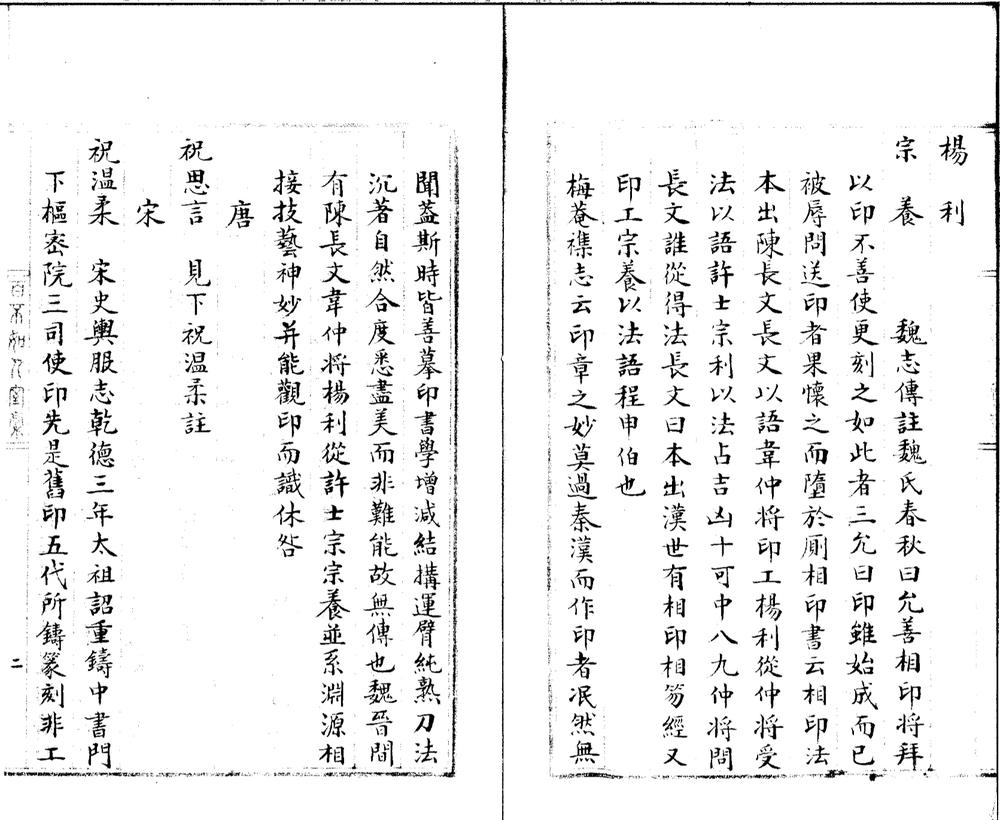 楊 利
宗 養 魏志傳註魏氏春秋曰允善相印將拜
以印不善使更刻之如此者三允曰印雖始成而已
被辱問送印者果懷之而墮於厠相印書云相印法
本出陳長文長文以語韋仲將印工楊利從仲將受
法以語許士宗利以法占吉凶十可中八九仲將問
長文誰從得法長文曰本出漢世有相印相笏經又
印工宗養以法語程申伯也
梅菴襍志云印章之妙莫過秦漢而作印者泯然無
聞蓋斯時皆善摹印書學增減結搆運臂純熟刀法
沉著自然合度悉盡美而非難能故無傳也魏晉間
有陳長文韋仲將楊利從許士宗宗養並系淵源相
接技藝神妙并能觀印而識休咎
唐
祝思言 見下祝温柔註
宋
祝温柔 宋史輿服志乾德三年太祖詔重鑄中書門
下樞宻院三司使印先是舊印五代所鑄篆刻非工
二